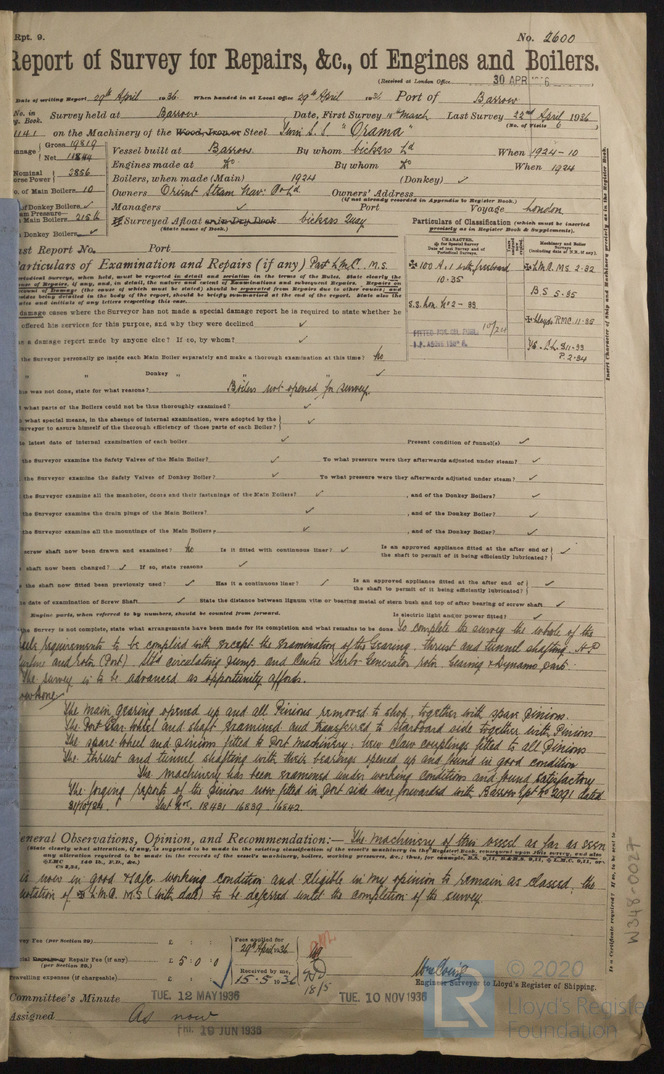 Rpt. 9.
No. 2600
Report of Survey for Repairs, &c., of Engines and Boilers.
(Received at London Office 30 APR 1936
Date of writing Report 29th April 1936. When handed in at Local Office 29th April 1936 Port of Barrow
No. in Survey held at Barrow Date, First Survey 11th March Last Survey 22nd April 1936
Reg. Book. (No. of Visits 6)
1141 on the Machinery of the Wood, Iron or Steel Twin S.S. "Orama"
Tonnage Gross 19819
Net 11844
Vessel built at Barrow By whom Vickers Ld When 1924-10
Nominal Horse Power 3866
Engines made at Do By whom Do When 1924
No. of Main Boilers 10
Boilers, when made (Main) 1924 (Donkey) ✓
No. of Donkey Boilers ✓
Owners Orient Steam Nav. Co Ld Owners' Address
(if not already recorded in Appendix to Register Book.)
Steam Pressure—
in Main Boilers 215 lb
Managers ✓ Port Voyage London
in Donkey Boilers ✓
If Surveyed Afloat or in Dry Dock Vickers Quay
(State name of Dock.)
Particulars of Classification (which must be inserted precisely as in Register Book & Supplements).
Last Report No. Port
CHARACTER.
Machinery and Boiler Surveys
(including date of N.B. if any).
Particulars of Examination and Repairs (if any) Part L.M.C. M.S.
100 A.1 with freeboard
10.35
S.S. Lon. No 2 - 33
FITTED FOR OIL FUEL 10/24
F.P. ABOVE 150° F.
L.M.C. M.S. 2.32
B.S. 5.35
Lloyds R.M.C. 11.35
In damage cases where the Surveyor has not made a special damage report he is required to state whether he
offered his services for this purpose, and why they were declined ✓
Was a damage report made by anyone else? If so, by whom? ✓
Did the Surveyor personally go inside each Main Boiler separately and make a thorough examination at this time? No
" " Donkey " " ✓
If this was not done, state for what reasons? Boilers not opened for survey
What parts of the Boilers could not be thoroughly examined? ✓
What special means, in the absence of internal examination, were adopted by the
Surveyor to assure himself of the thorough efficiency of those parts of each Boiler? ✓
State latest date of internal examination of each boiler ✓ Present condition of funnel(s) ✓
Did the Surveyor examine the Safety Valves of the Main Boiler? ✓ To what pressure were they afterwards adjusted under steam? ✓
Did the Surveyor examine the Safety Valves of Donkey Boiler? ✓ To what pressure were they afterwards adjusted under steam? ✓
Did the Surveyor examine all the manholes, doors and their fastenings of the Main Boilers? ✓, and of the Donkey Boilers? ✓
Did the Surveyor examine the drain plugs of the Main Boilers? ✓, and of the Donkey Boiler? ✓
Did the Surveyor examine all the mountings of the Main Boilers? ✓, and of the Donkey Boiler? ✓
Has screw shaft now been drawn and examined? No Is it fitted with continuous liner? ✓ Is an approved appliance fitted at the after end of
the shaft to permit of it being efficiently lubricated? ✓
Has shaft now been changed? ✓ If so, state reasons ✓
Has the shaft now fitted been previously used? ✓ Has it a continuous liner? ✓ Is an approved appliance fitted at the after end of
the shaft to permit of it being efficiently lubricated? ✓
State date of examination of Screw Shaft ✓ State the distance between lignum vitæ or bearing metal of stern bush and top of after bearing of screw shaft ✓
Engine parts, when referred to by numbers, should be counted from forward. Is electric light and/or power fitted? ✓
If the Survey is not complete, state what arrangements have been made for its completion and what remains to be done To complete the survey the whole of the
rule requirements to be complied with except the examination of the Gearing, thrust and tunnel shafting, H.P
turbine and rotor (Port) Stbd circulating pump and Centre Turbo-Generator rotor bearing & Dynamo part.
The survey is to be advanced as opportunity affords.
Now done
The main gearing opened up and all Pinions removed to shop together with spare pinions.
The Port Gear Wheel and shaft examined and transferred to Starboard side together with Pinions
The spare Wheel and pinions fitted to Port machinery. New claw couplings fitted to all Pinions
The thrust and tunnel shafting with their bearings opened up and found in good condition
The machinery has been examined under working conditions and found satisfactory
The forging reports of the pinions now fitted in port side were forwarded with Barrow Rpt No 2091 dated
31/10/24. Test Nos. 18431 16839 16842.
General Observations, Opinion, and Recommendation:— The machinery of this vessel as far as seen
is now in good & safe working condition and eligible in my opinion to remain as classed, the
notation of L.M.C. M.S (with date) to be deferred until the completion of the survey.
Survey Fee (per Section 29) £ : :
Fees applied for
29th April 1936
Special Damage or Repair Fee (if any) £ 5 : 0 : 0
(per Section 29.)
Received by me,
15.5.1936
18/5
Travelling expenses (if chargeable) £ : :
Engineer Surveyor to Lloyd's Register of Shipping.
Committee's Minute TUE. 12 MAY 1936 TUE. 10 NOV 1936
Assigned As now
FRI. 19 JUN 1936
W348-0027
© 2020
Lloyd's Register
Foundation